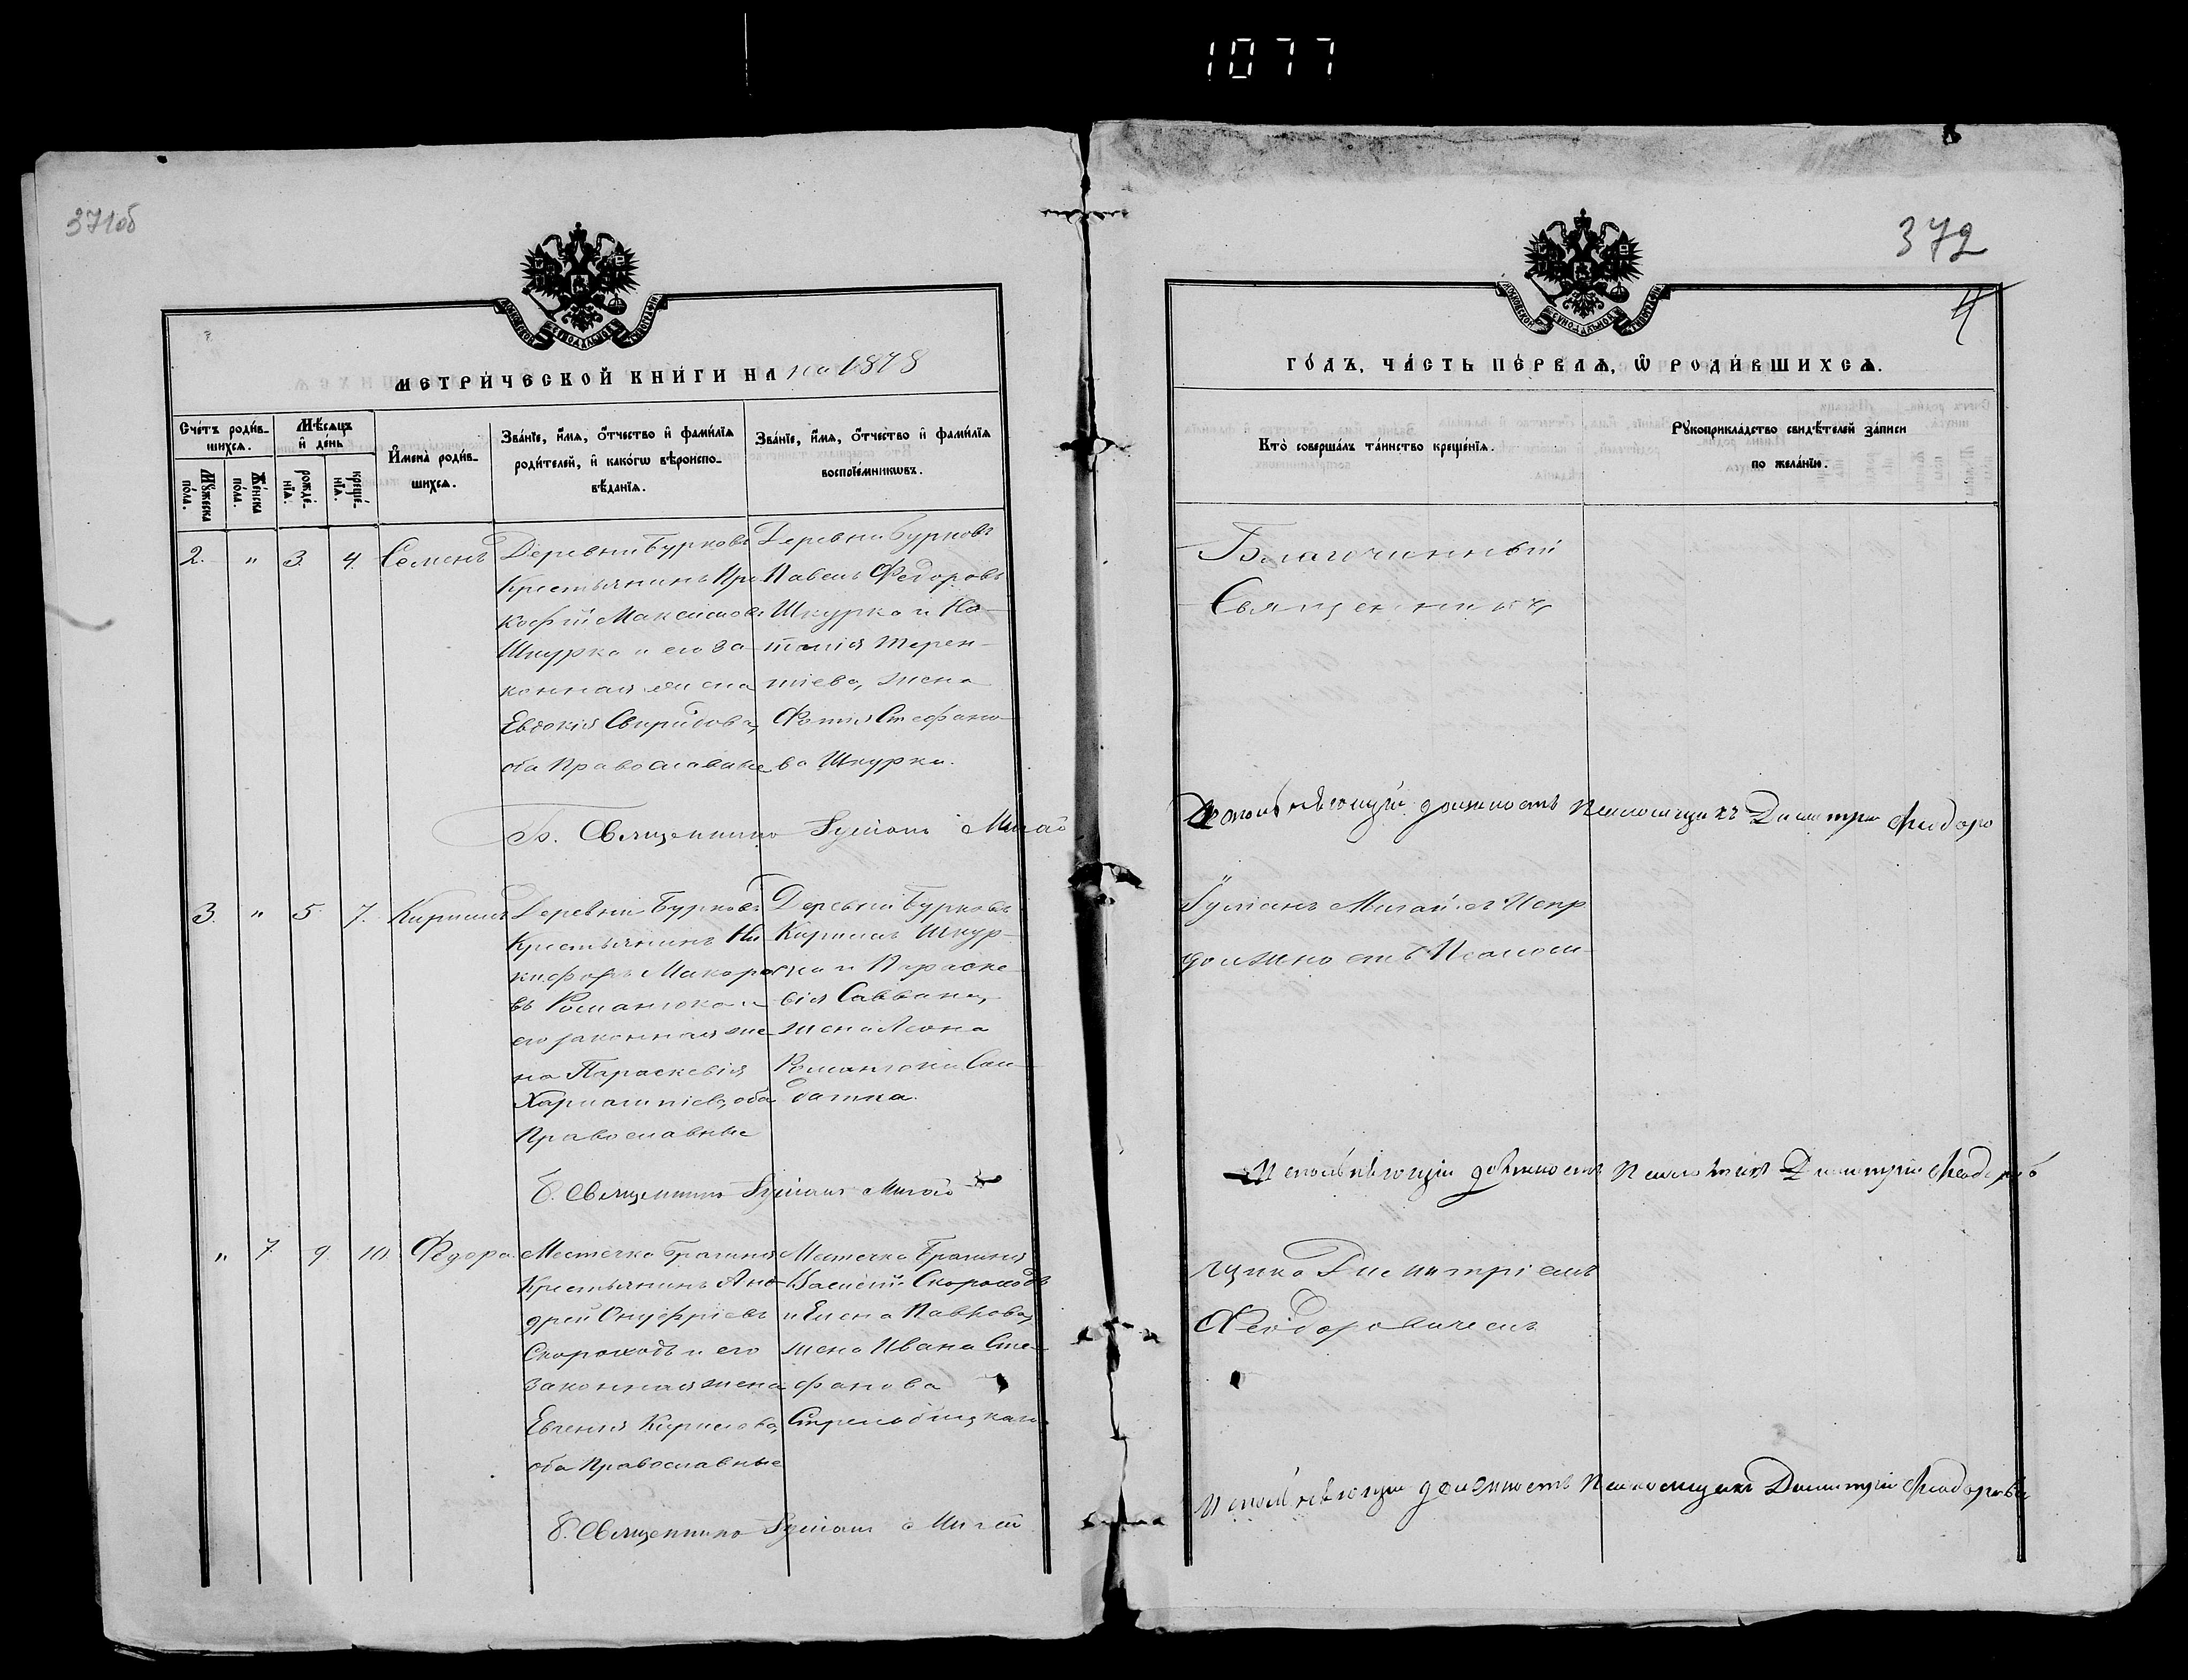 1077
371об
372
4
МЕТРИ́ЧЕСКОЙ КНИ́ГИ НА на 1878
ГО́ДЪ, ЧА́СТЬ ПЕ́РВАѦ, Ѡ҆ РОДИ́ВШИХСѦ.
Сче́тъ роди́в-
шихсѧ.
Мѣ́сѧцъ
и҆ де́нь
Мꙋ́жеска
по́ла.
Же́нска
по́ла.
рожде́-
нїѧ.
креще́-
нїѧ.
И҆мена̀ роди́в-
шихсѧ.
Зва́нїе, и҆́мѧ, ѻ҆́тчество и҆ фамі́лїѧ
роди́телей, и҆ како́гѡ вѣроиспо-
вѣ́данїѧ.
Зва́нїе, и҆́мѧ, ѻ҆́тчество и҆ фамі́лїѧ
воспрїе́мникѡвъ.
Кто̀ соверша́лъ та́инство креще́нїѧ.
Рꙋкоприкла́дство свидѣ́телей за́писи
по жела́нїю.
2. " 3. 4. Семенъ
Деревни Бурковъ
Крестьянинъ Про
кофій Максимовъ
Шкурко и его за-
конная жена
Евдокія Свиридова,
оба Православные
Деревни Бурковъ
Павелъ Федоровъ
Шкурко и На-
талія Терен-
тіева, жена
Фотія Стефано-
ва Шкурки.
Благочинный
Священникъ
Б. Священникъ Мигай
Исполняющій должность Псаломщика Димитрій Феодоро
3. " 5. 7. Кириллъ
Деревни Бурковъ
Крестьянинъ Ни
кифоръ Макаро
въ Романюка и
его законная же
на Параскевія
Харлампіева, оба
Православные
Деревни Бурковъ
Кириллъ Шкур-
ка и Параске-
вія Саввана,
жена Леона
Романюка Сол-
датка.
Мигай и Испр
должность Псалом-
Б. Священникъ Мигай
Исполняющій должность Димитрій Феодоровъ
" 7. 9. 10. Федора.
Местечка Брагиня
Крестьянинъ Ан-
дрей Онуфріевъ
Скороходъ и его
законная жена
Евгенія Кирилова,
оба Православные
Местечка Брагиня
Василій Скороходъ
и Елена Павлова,
жена Ивана Сте-
фанова
щика Димитріемъ
Феодоровичемъ
Б. Священникъ Мигай
Исполняющій должность Псаломщика Димитрій Феодоровъ